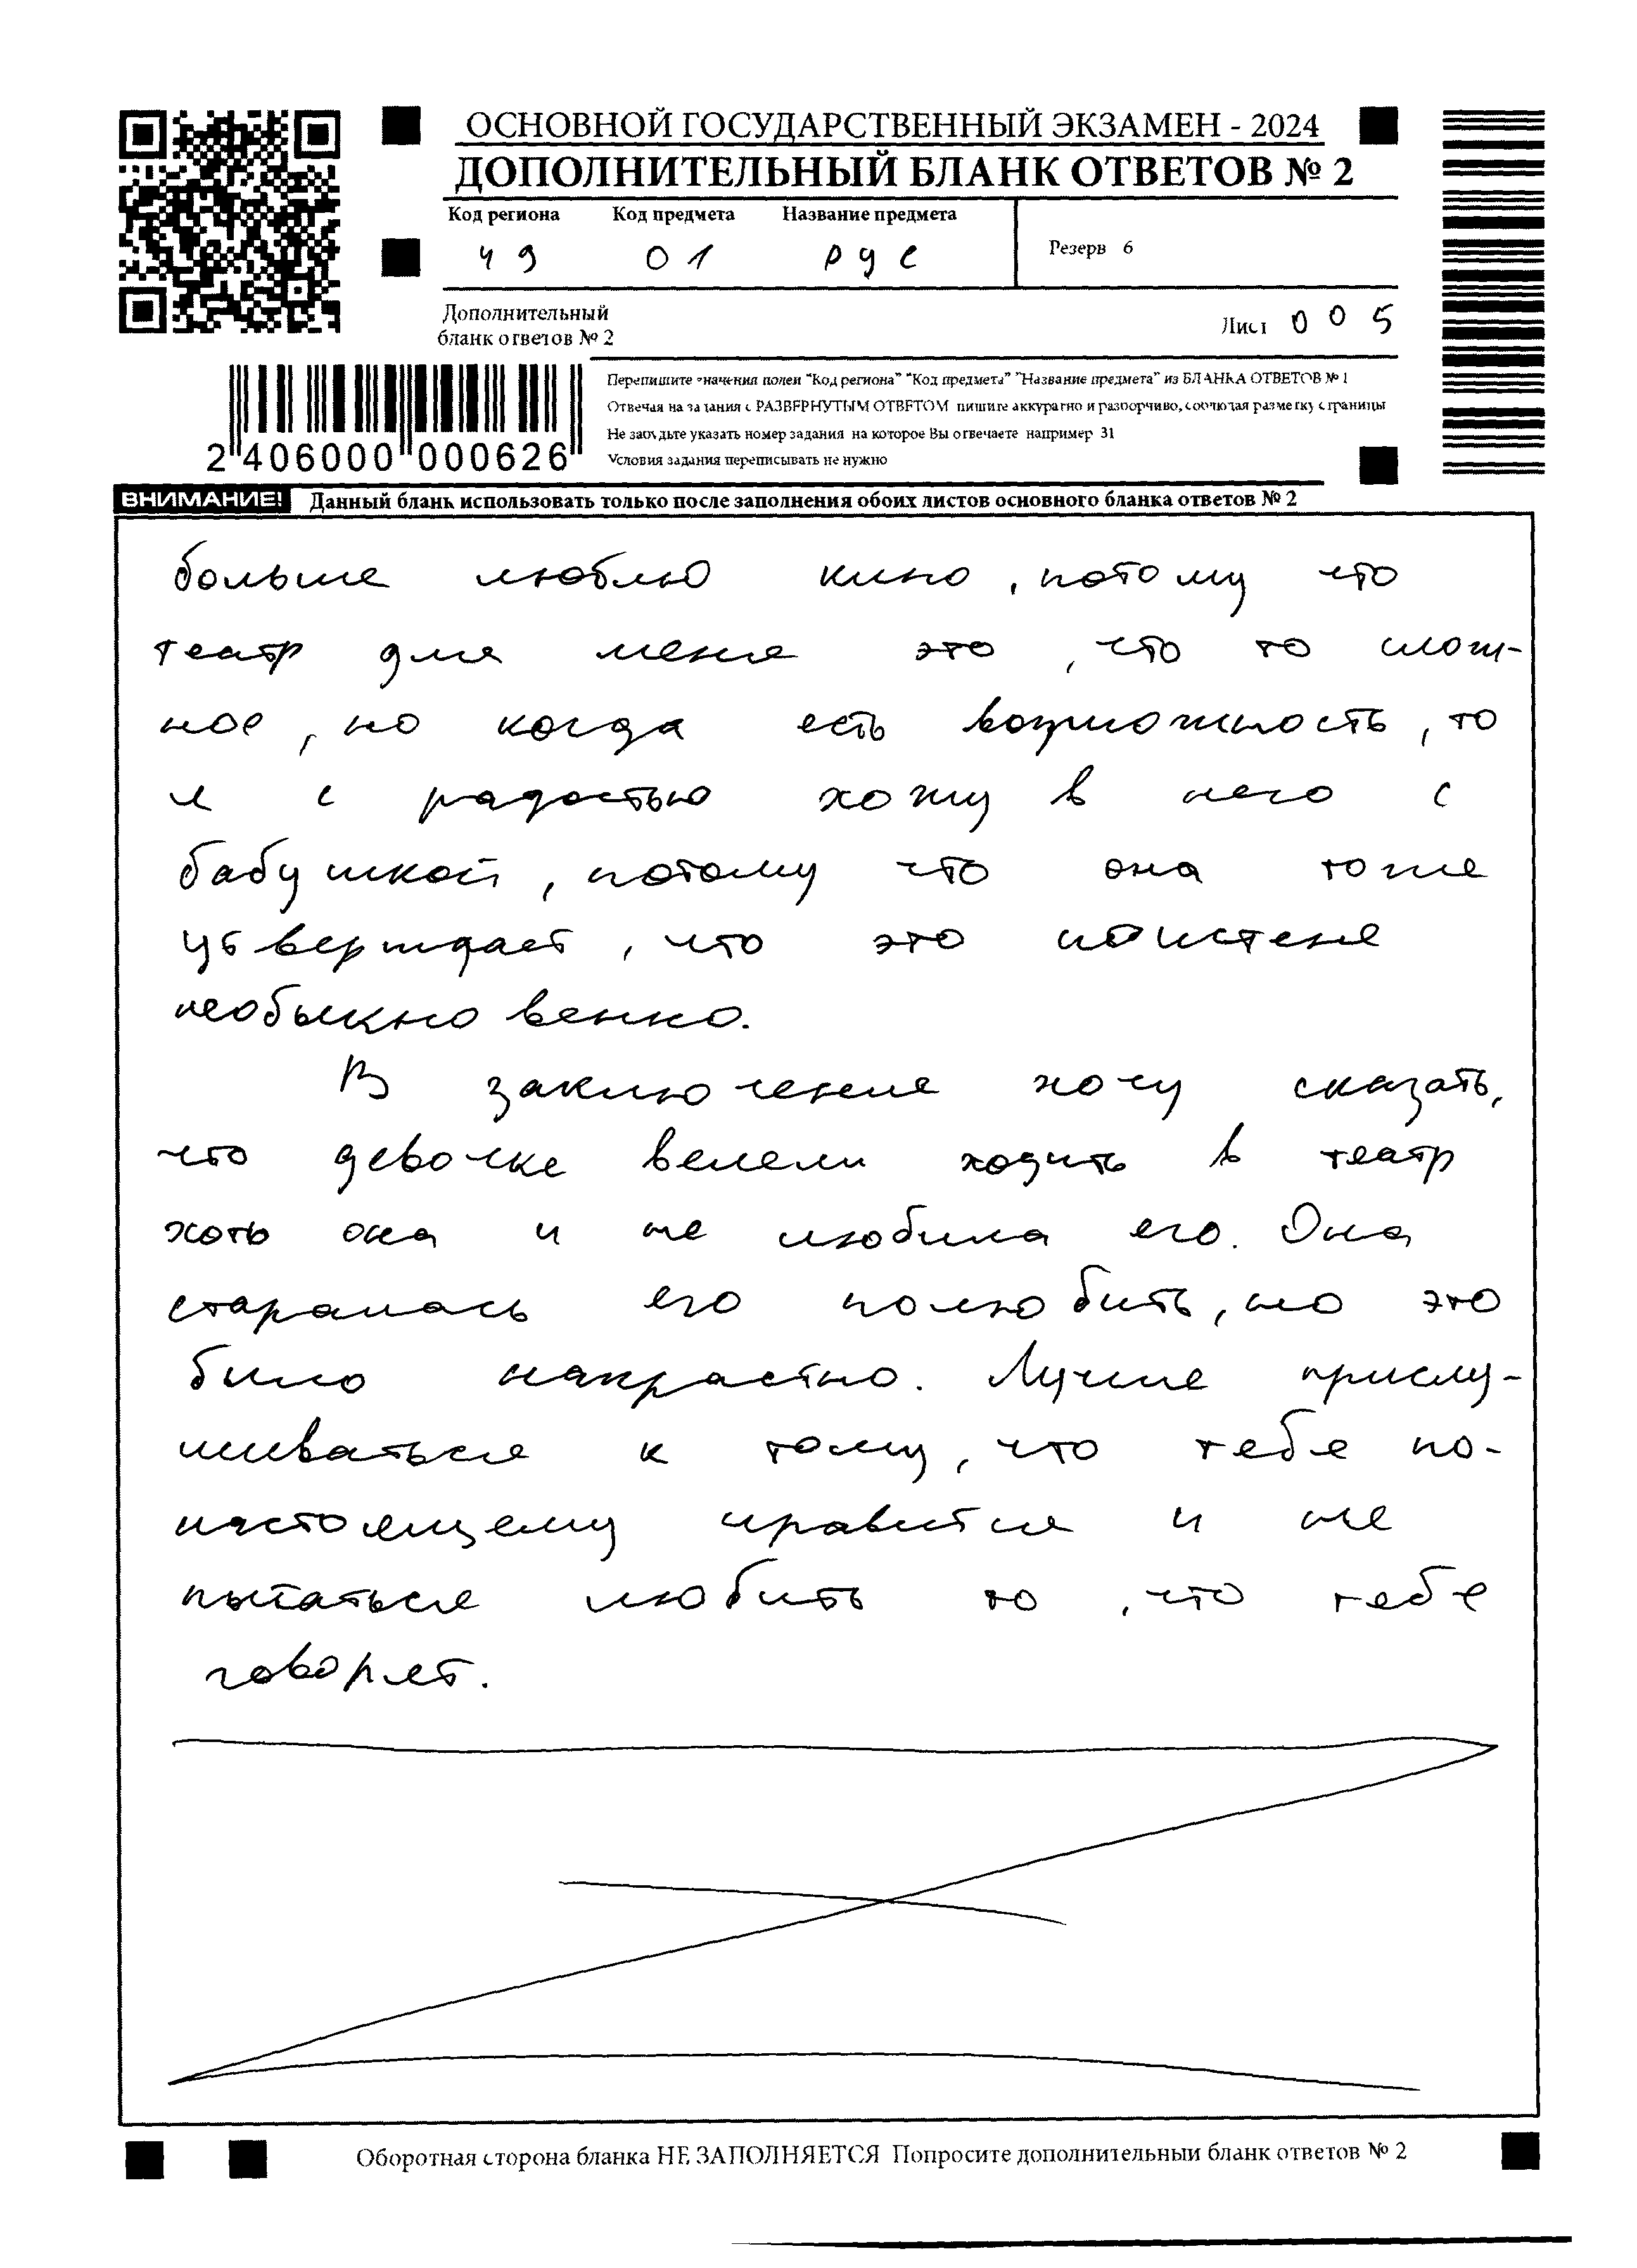 ОСНОВНОЙ ГОСУДАРСТВЕННЫЙ ЭКЗАМЕН - 2024
ДОПОЛНИТЕЛЬНЫЙ БЛАНК ОТВЕТОВ № 2
Код региона Код предмета Название предмета
49 01 рус
Резерв 6
Дополнительный
бланк ответов № 2
Лист 005
Перепишите значения полей "Код региона" "Код предмета" "Название предмета" из БЛАНКА ОТВЕТОВ № 1
Отвечая на задания с РАЗВЕРНУТЫМ ОТВЕТОМ пишите аккуратно и разборчиво, соблюдая разметку страницы
Не забудьте указать номер задания на которое Вы отвечаете например 31
Условия задания переписывать не нужно
2 406000 000626
ВНИМАНИЕ! Данный бланк использовать только после заполнения обоих листов основного бланка ответов № 2
больше люблю кино, потому что
театр для меня это, что то слож-
ное, но когда есть возможность, то
я с радостью хожу в него с
бабушкой, потому что она тоже
утверждает, что это поистене
необыкновенно.
В заключение хочу сказать,
что девочке велели ходить в театр
хоть она и не любила его. Она
старалась его полюбить, но это
было напрастно. Лучше прислу-
шиваться к тому, что тебе по-
настоящему нравится и не
пытаться любить то, что тебе
говорят.
Оборотная сторона бланка НЕ ЗАПОЛНЯЕТСЯ Попросите дополнительный бланк ответов № 2